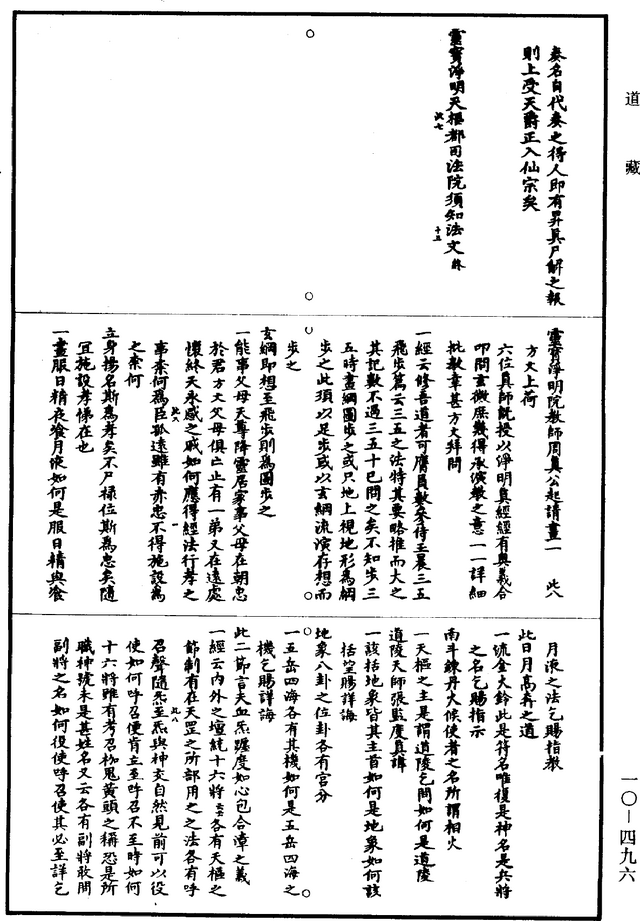 道藏
奏名自代奏之得人即有昇真尸解之報
則上受天爵正入仙宗矣
靈寶淨明天樞都司法院須知法文終
此七
十五
靈寶淨明院教師周真公起請畫一
此八
方文上荷
六位真師說授以淨明真經經有奧義合
叩問玄微庶幾得承演教之意一一詳細
批教幸甚方文拜問
一經云修吾道者可膺員數來侍王晨三五
飛步篇云三五之法特其要略推而大之
其記數不過三五十巳問之矣不知步三
五時畫綱圖步之或只地上視地形為綱
步之此須以足步或以玄綱流演存想而
步之
玄綱即想至飛步則為圖步之
一能事父母天尊降靈居家事父母在朝忠
於君方文父母俱亡止有一弟又在遠處
懷終天永感之戚如何應得經法行孝之
事柰何為臣孤遠雖有赤忠不得施設為
此八
一
之柰何
立身揚名斯為孝矣不尸祿位斯為忠矣隨
宜施設孝悌在也
一畫服日精夜飧月液如何是服日精與飧
月液之法乞賜指教
此日月高奔之道
一流金大鈴此是符名唯復是神名是兵將
之名乞賜指示
南斗鍊丹大候使者之名所謂相火
一天樞之主是謂道陵乞問如何是道陵
道陵天師張監度真諱
一該括地象皆其主首如何是地象如何該
括望賜詳誨
地象八卦之位卦各有宮分
一五岳四海各有其機如何是五岳四海之
機乞賜詳誨
此二節言天血炁躔度如心包合漳之義
一經云內外之壇統十六將各有天樞之
節制有在天罡之所部用之之法各有呼
此八
召聲隨炁至炁與神交自然見前可以役
使如何呼召便肯立至呼召不至時如何
十六將雖有考召枷鬼黃頭之稱恐是所
職神號未是甚姓名又云各有副將敢問
副將之名如何役使呼召使其必至詳乞
一〇—四九六